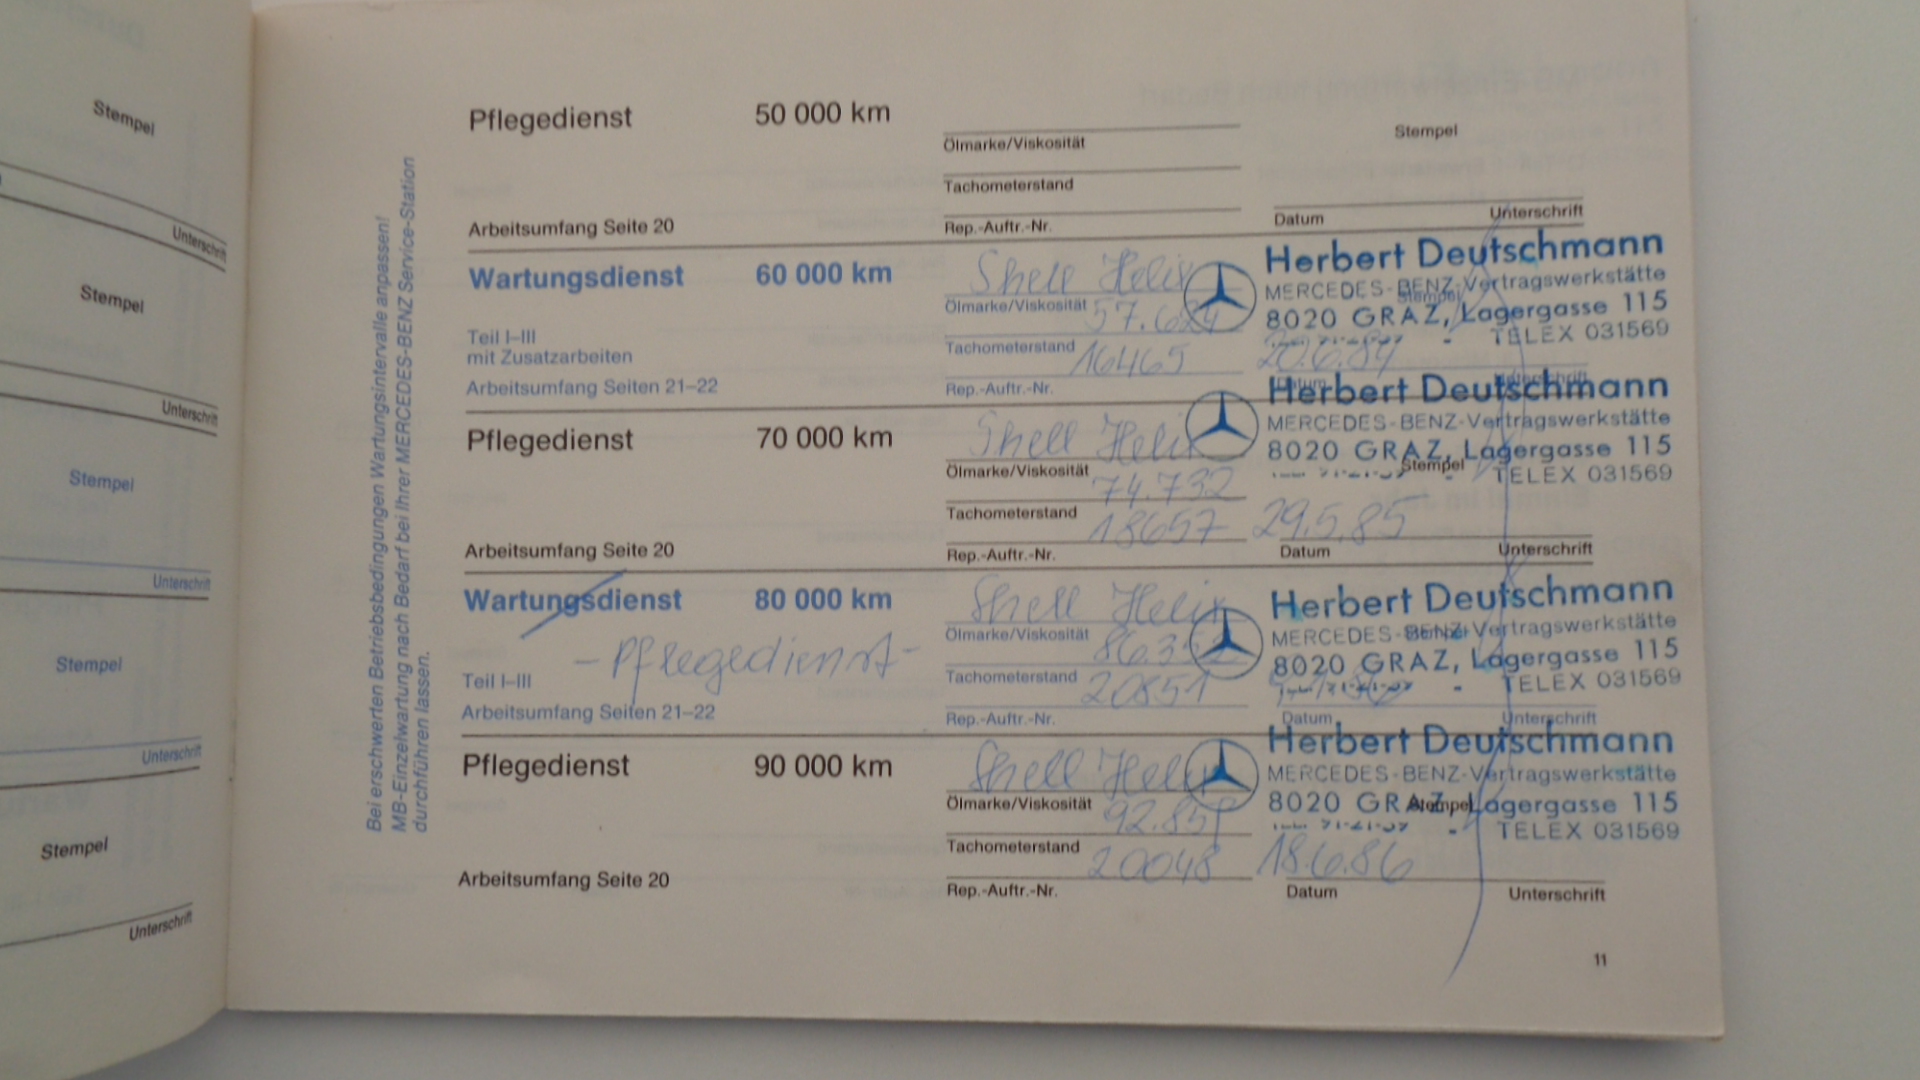 Stempel
Unterschrift
Stempel
Unterschrift
Stempel
Unterschrift
Stempel
Unterschrift
Stempel
Unterschrift
Bei erschwerten Betriebsbedingungen Wartungsintervalle anpassen!
MB-Einzelwartung nach Bedarf bei Ihrer MERCEDES-BENZ Service-Station
durchführen lassen.
Pflegedienst 50 000 km
Ölmarke/Viskosität
Stempel
Tachometerstand
Arbeitsumfang Seite 20
Rep.-Auftr.-Nr.
Datum Unterschrift
Wartungsdienst 60 000 km
Shell Helix
Ölmarke/Viskosität
Herbert Deutschmann
MERCEDES-BENZ-Vertragswerkstätte
Stempel
8020 GRAZ, Lagergasse 115
TELEX 031569
Teil I–III
mit Zusatzarbeiten
57.624
Tachometerstand
16465 20.6.84
Arbeitsumfang Seiten 21–22
Rep.-Auftr.-Nr.
Datum Unterschrift
Pflegedienst 70 000 km
Shell Helix
Ölmarke/Viskosität
Herbert Deutschmann
MERCEDES-BENZ-Vertragswerkstätte
8020 GRAZ, Lagergasse 115
Stempel
TELEX 031569
74.732
Tachometerstand
18657 29.5.85
Arbeitsumfang Seite 20
Rep.-Auftr.-Nr.
Datum Unterschrift
Wartungsdienst 80 000 km
Shell Helix
Ölmarke/Viskosität
Herbert Deutschmann
MERCEDES-BENZ-Vertragswerkstätte
8020 GRAZ, Lagergasse 115
TELEX 031569
- Pflegedienst -
86.352
Teil I–III
Tachometerstand
20851
Arbeitsumfang Seiten 21–22
Rep.-Auftr.-Nr.
Datum Unterschrift
Pflegedienst 90 000 km
Shell Helix
Ölmarke/Viskosität
Herbert Deutschmann
MERCEDES-BENZ-Vertragswerkstätte
8020 GRAZ, Lagergasse 115
Stempel
TELEX 031569
Tachometerstand
20048 18.6.86
Arbeitsumfang Seite 20
Rep.-Auftr.-Nr.
Datum Unterschrift
11